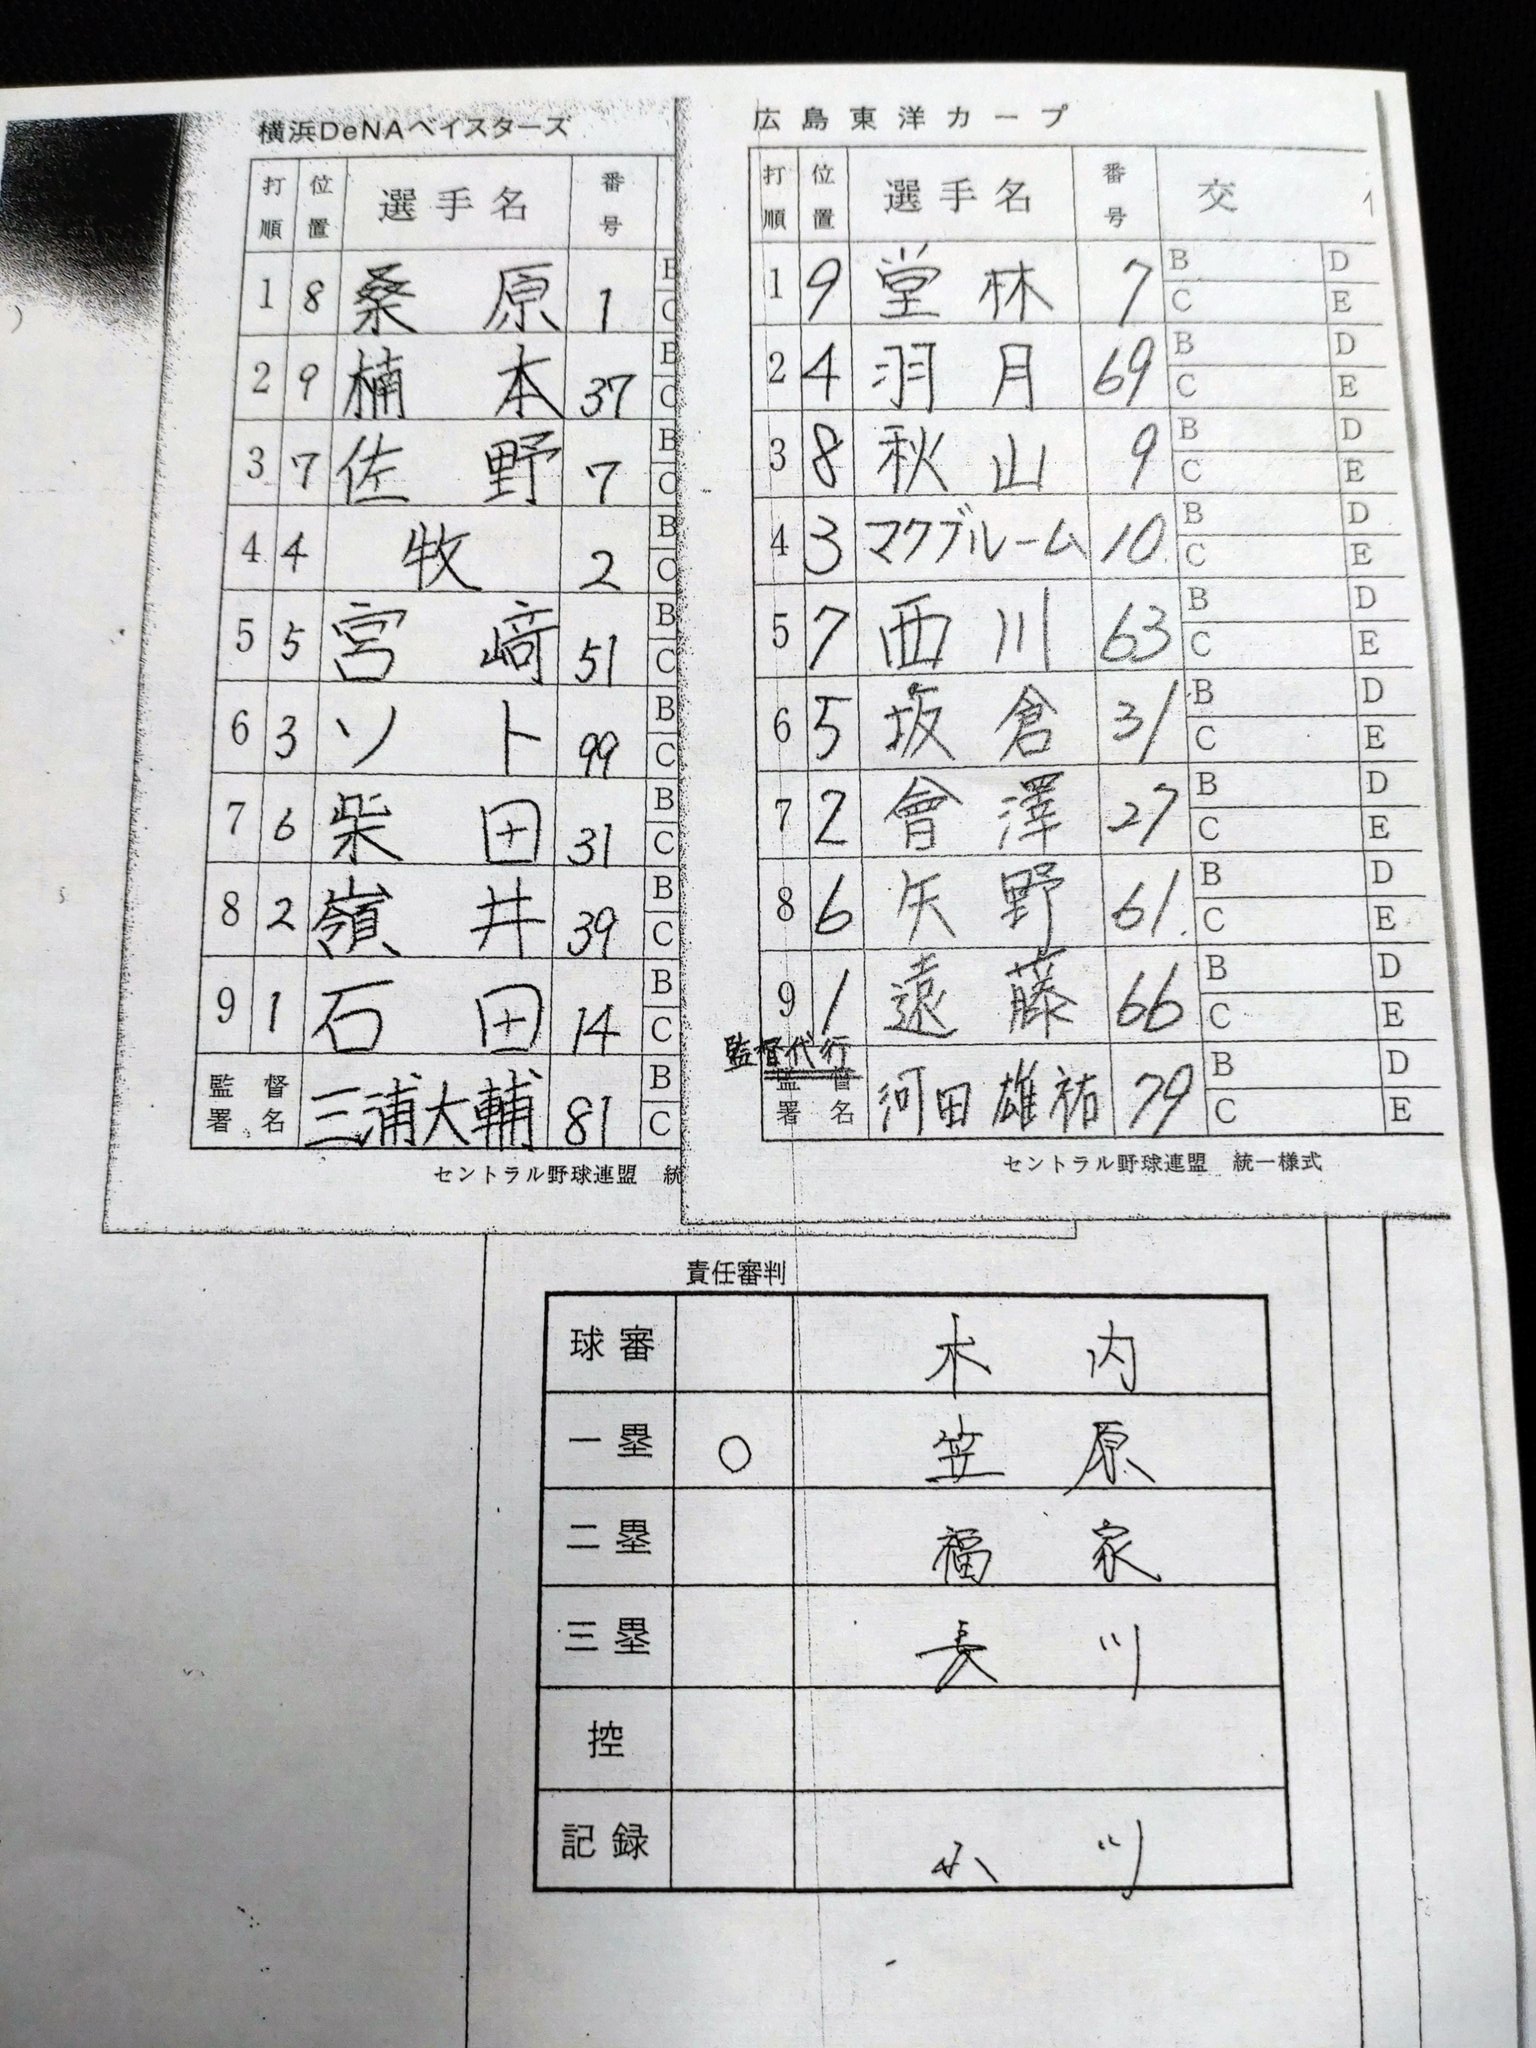 横浜DeNAベイスターズ
打順 位置 選手名 番号
1 8 桑原 1 B C
2 9 楠本 37 B C
3 7 佐野 7 B C
4 4 牧 2 B C
5 5 宮﨑 51 B C
6 3 ソト 99 B C
7 6 柴田 31 B C
8 2 嶺井 39 B C
9 1 石田 14 B C
監督署名 三浦大輔 81 B C
セントラル野球連盟 統
広島東洋カープ
打順 位置 選手名 番号 交
1 9 堂林 7 B C D E
2 4 羽月 69 B C D E
3 8 秋山 9 B C D E
4 3 マクブルーム 10 B C D E
5 7 西川 63 B C D E
6 5 坂倉 31 B C D E
7 2 會澤 27 B C D E
8 6 矢野 61 B C D E
9 1 遠藤 66 B C D E
監督代行
監督署名 河田雄祐 79 B C D E
セントラル野球連盟 統一様式
責任審判
球審 木内
一塁 ○ 笠原
二塁 福家
三塁 長川
控
記録 小川